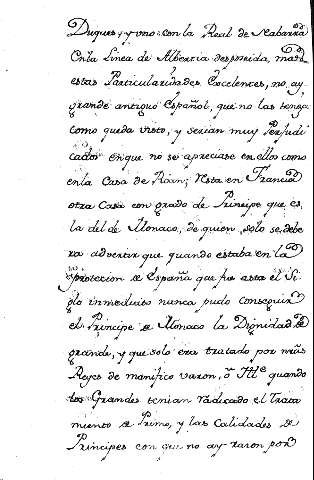 Duques, y uno con la Real de Nabarra
En la Linea de Albertia desposeida, mas
estas Particularidades Excelentes, no ay
grande antiguo Español, que no las tenga
como queda visto, y serian muy Perjudi
cados en que no se apreciase en ellos como
en la Casa de Roan; Resta en Francia
otra Casa con grado de Principe que es
la del de Monaco, de quien solo se debe
ra advertir que quando estaba en la
proteccion de España que fue asta el Si
glo inmediato nunca pudo conseguir
el Principe de Monaco la Dignidad de
grande, y que solo era tratado por nrũs
Reyes de manifico varon, ō Ille quando
los Grandes tenian radicado el Trata
miento de Primo, y las Calidades de
Principes con que no ay razon por